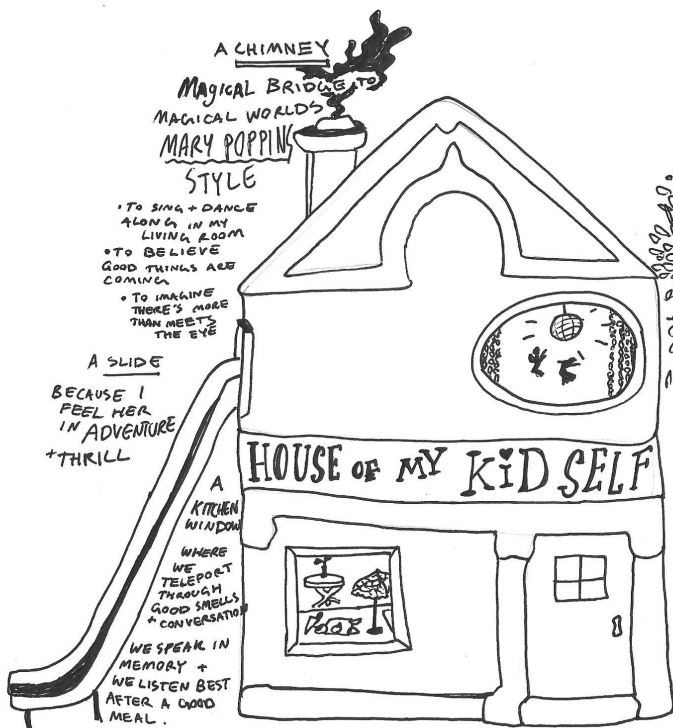 A CHIMNEY
MAGICAL BRIDGE TO
MAGICAL WORLDS
MARY POPPINS
STYLE
• TO SING + DANCE
ALONG IN MY
LIVING ROOM
• TO BELIEVE
GOOD THINGS ARE
COMING
• TO IMAGINE
THERE'S MORE
THAN MEETS
THE EYE
A SLIDE
BECAUSE I
FEEL HER
IN ADVENTURE
+ THRILL
HOUSE OF MY KiD SELF
A
KITCHEN
WINDOW
WHERE
WE
TELEPORT
THROUGH
GOOD SMELLS
+ CONVERSATION
WE SPEAK IN
MEMORY +
WE LISTEN BEST
AFTER A GOOD
MEAL.